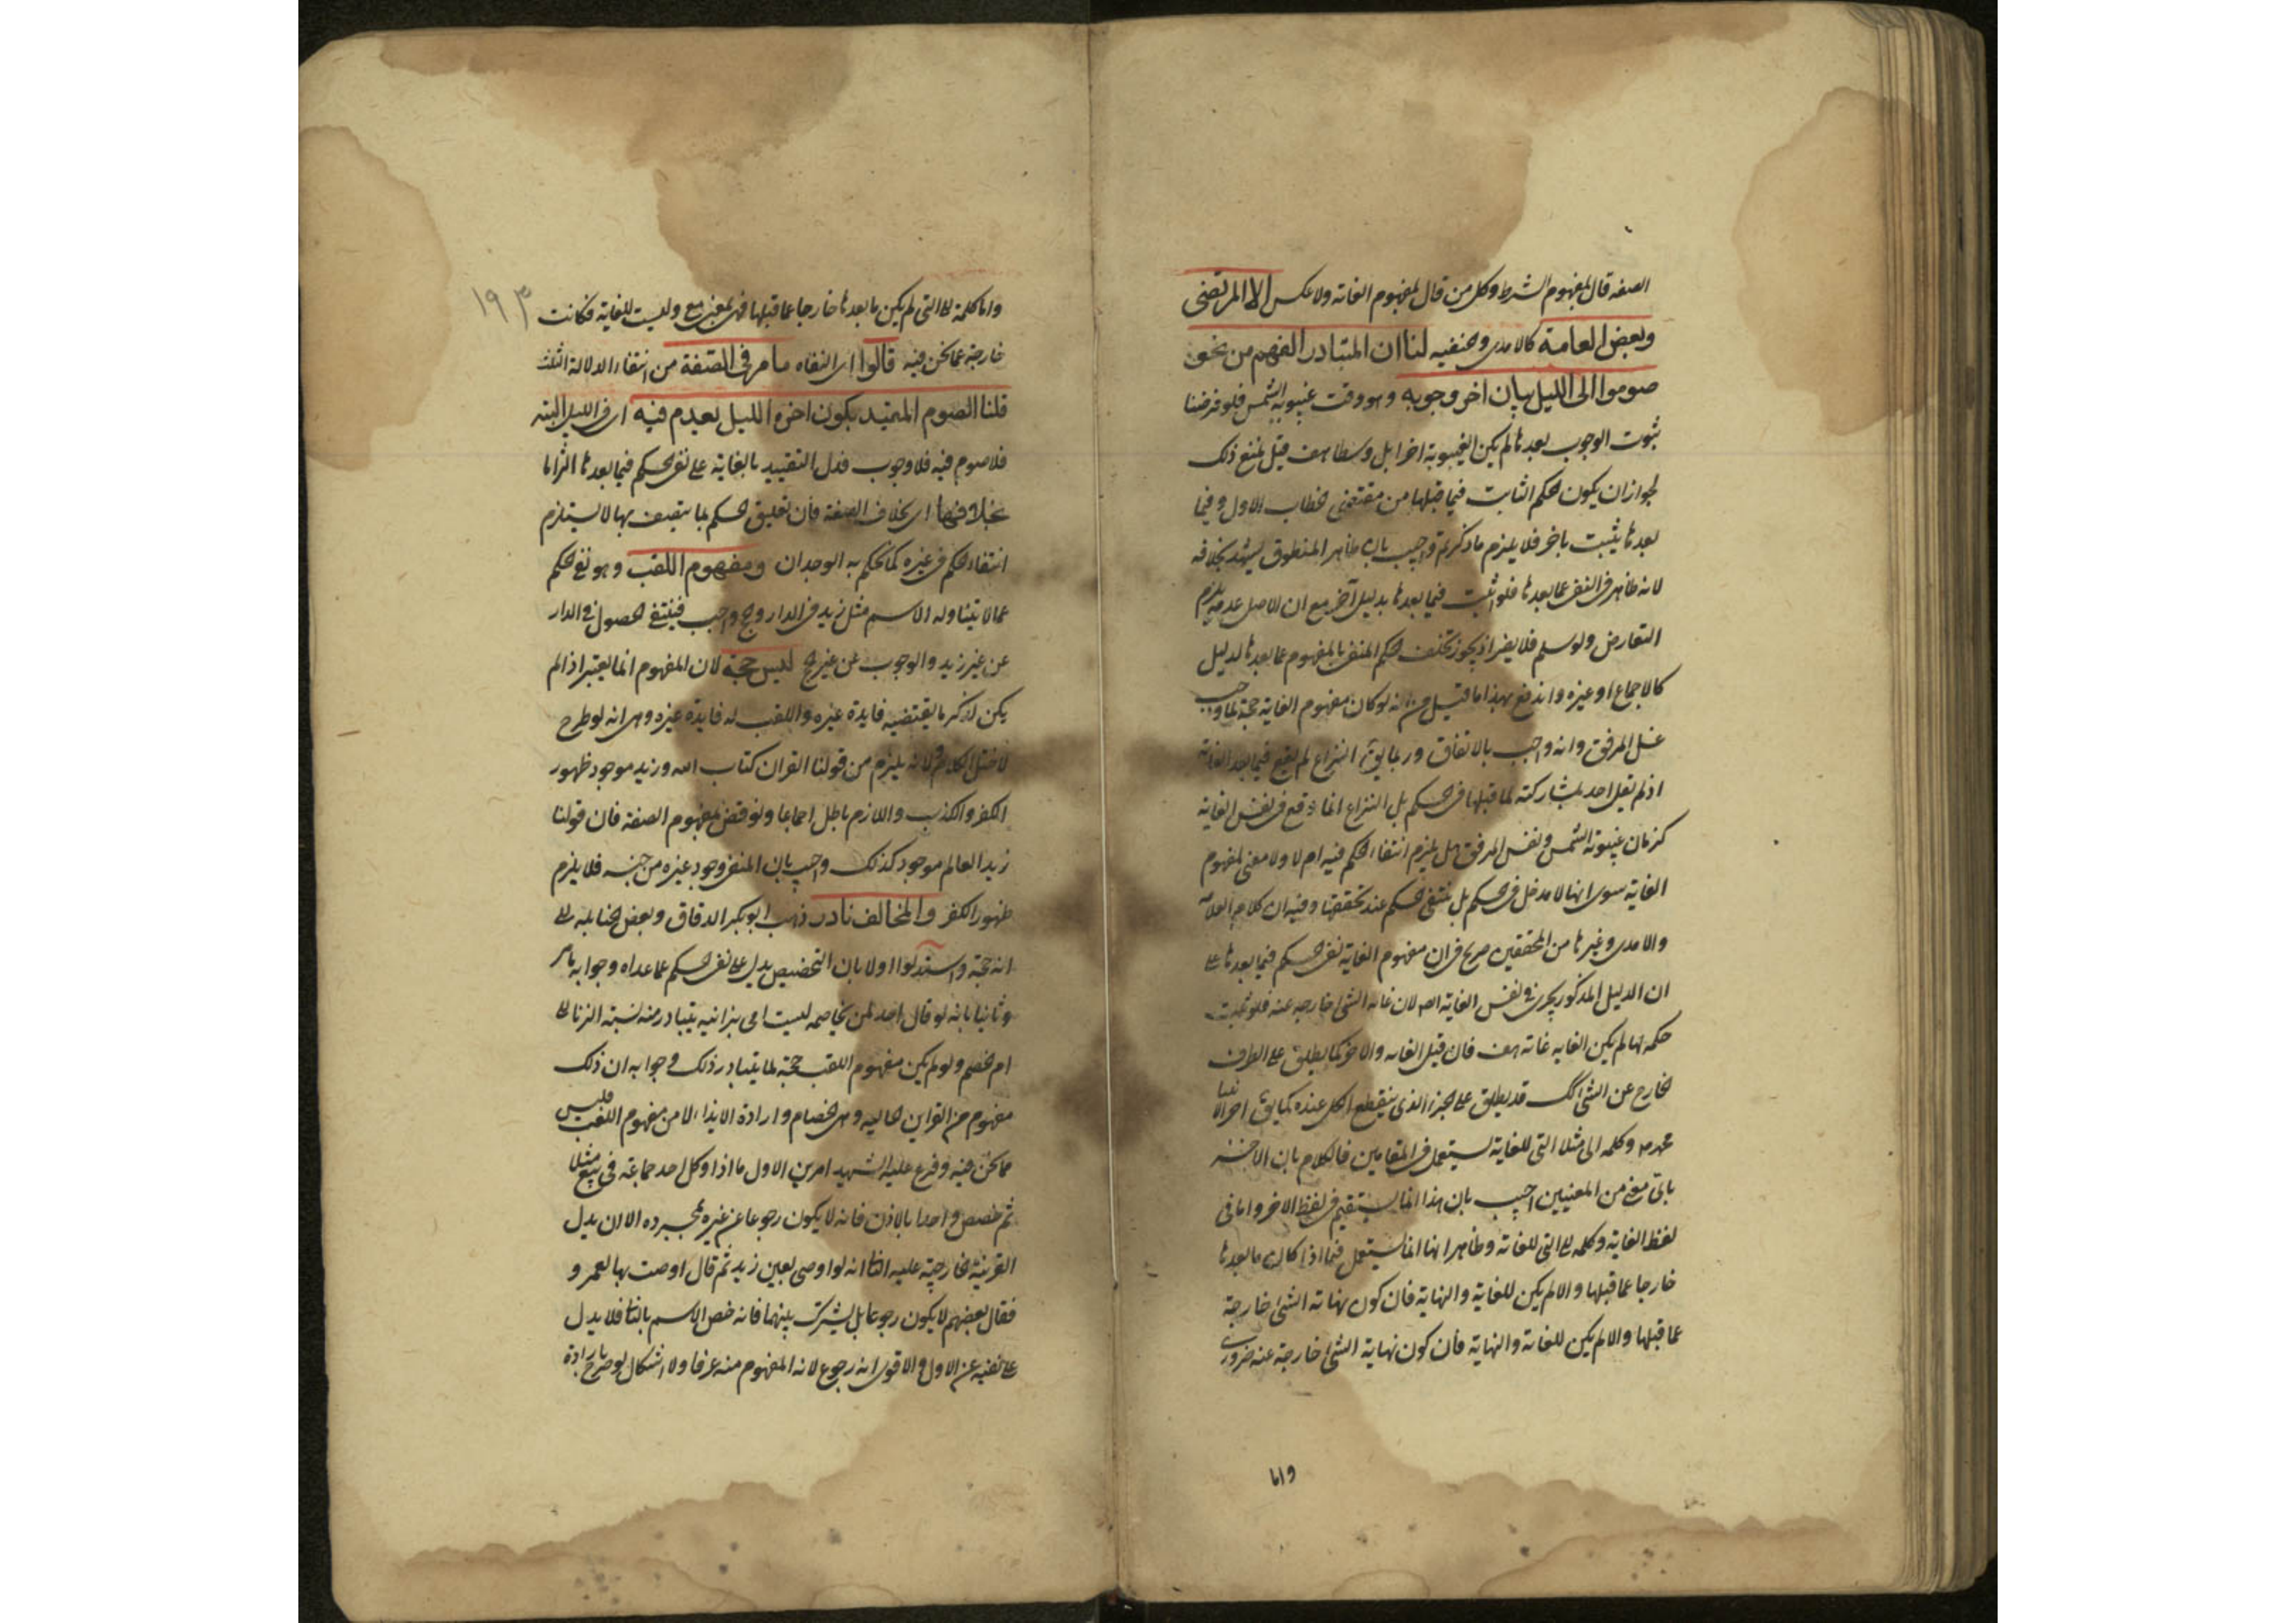 الصفه قال بمفهوم الشرط وكل من قال بمفهوم الغاته ولا عكس الا المرتضى
وبعض العامة كالامدى والحنفيه لنا ان المتبادر الفهم من نحو
صوموا الى الليل بيان اخر وجوبه وهو وقت غيبوبة الشمس فلو فرضنا
ثبوت الوجوب بعدها لم يكن الغيبوبة اخرا بل وسطا هف قيل نمنع ذلك
لجواز ان يكون الحكم الثابت فيما قبلها من مقتضى الخطاب الاول وفيما
بعدها يثبت باخر فلا يلزم ما ذكرتم واجيب بان ظاهر المنطوق يشهد بخلافه
لانه ظاهر فى النفى عما بعدها فلو اثبت فيما بعدها بدليل آخر مع ان الاصل عدمه يلزم
التعارض ولو سلم فلا يضر اذ يجوز تخلف الحكم المنفى بالمفهوم عما بعدها لدليل
كالاجماع او غيره واندفع بهذا ما قيل من انه لو كان مفهوم الغاية حجة لما وجب
غسل المرفق وانه واجب بالاتفاق وربما يق النزاع لم يقع فيما بعد الغاية
اذ لم يقل احد بمشاركته لما قبلها فى الحكم بل النزاع انما وقع فى نفس الغاية
كزمان غيبوبة الشمس ونفس المرفق هل يلزم انتفاء الحكم فيه ام لا ولا معنى لمفهوم
الغاية سوى انها لا مدخل فى الحكم بل ينتفى الحكم عند تحققها وفيه ان كلام العلامه
والامدى وغيرها من المحققين صريح فى ان مفهوم الغاية نفى الحكم فيما بعدها على
ان الدليل المذكور يجرى فى نفس الغاية اىضا لان غاية الشئ خارجه عنه فلو ثبت
حكمه لها لم يكن الغايه غاته هف فان قيل الغاىه والاخر كما يطلق على الطرف
الخارج عن الشئ كك قد يطلق على الجزء الذى ينقطع الكل عنده كما يق اخر الانبيا
محمد ص وكلمه الى مثلا التى للغاية تستعمل فى المقامين فالكلام بان الاخر
باى معنى من المعنيين اجيب بان هذا انما يستقيم فى لفظ الاخر واما فى
لفظ الغاية وكلمه الى التى للغاته وظاهر انها انما تستعمل فيما اذا كان ما بعدها
خارجا عما قبلها والا لم يكن للغاية والنهاية فان كون نهاته الشئ خارجة
عما قبلها والا لم يكن للغاته والنهاية فان كون نهاية الشئ خارجة عنه ضرورى
واما
١٩٣
واما كلمة الى التى لم يكن ما بعدها خارجا عما قبلها فهى بمعنى مع وليست للغاية فكانت
خارجة عما نحن فيه قالوا اى النفاه ما مر فى الصفة من انتفاء الدلالة الثلث
قلنا الصوم المقيد بكون اخره الليل يعدم فيه اى فى الليل البته
فلا صوم فيه فلا وجوب فدل التقييد بالغاية على نفى الحكم فيما بعدها التزاما
بخلافها اى بخلاف الصفة فان تعليق الحكم بما يتصف بها لا يستلزم
انتفاء الحكم فى غيره كما يحكم به الوجدان ومفهوم اللقب وهو نفى الحكم
عما لا يتناوله الاسم مثل زيد فى الدار والحج واجب فينتفى الحصول فى الدار
عن غير زيد والوجوب عن غير الحج ليس حجة لان المفهوم انما يعتبر اذا لم
يكن لذكر ما يقتضيه فايدة غيره واللقب له فايدة غيره وهى انه لو طرح
لاختل الكلام ولانه يلزم من قولنا القران كتاب الله وزيد موجود ظهور
الكفر والكذب واللازم باطل اجماعا ونوقض بمفهوم الصفة فان قولنا
زيد العالم موجود كذلك واجيب بان المنفى وجود غيره من جنسه فلا يلزم
ظهور الكفر والمخالف نادر ذهب ابو بكر الدقاق وبعض الحنابله الى
انه حجة واستدلوا اولا بان التخصيص يدل على نفى الحكم عما عداه وجوابه ما مر
وثانيا بانه لو قال احد لمن يخاصمه ليست امى بزانيه يتبادر منه نسبة الزنا الى
ام الخصم ولو لم يكن مفهوم اللقب حجة لما يتبادر ذلك وجوابه ان ذلك
مفهوم من القراين الحاليه وهى الخصام وارادة الايذاء لا من مفهوم اللقب فليس
مما نحن فيه وفرع عليه الشهيد امرين الاول ما اذا وكل احد جماعة فى بيع مثلا
ثم خصص واحدا بالاذن فانه لا يكون رجوعا عن غيره بمجرده الا ان يدل
القرينة الخارجية عليه الثا انه لو اوصى بعين لزيد ثم قال اوصيت بها لعمرو
فقال بعضهم لا يكون رجوعا بل يشرك بينهما فانه خص الاسم بالثا فلا يدل
على نفيه عن الاول والاقوى انه رجوع لانه المفهوم منه عرفا ولا اشكال لو صرح بارادة